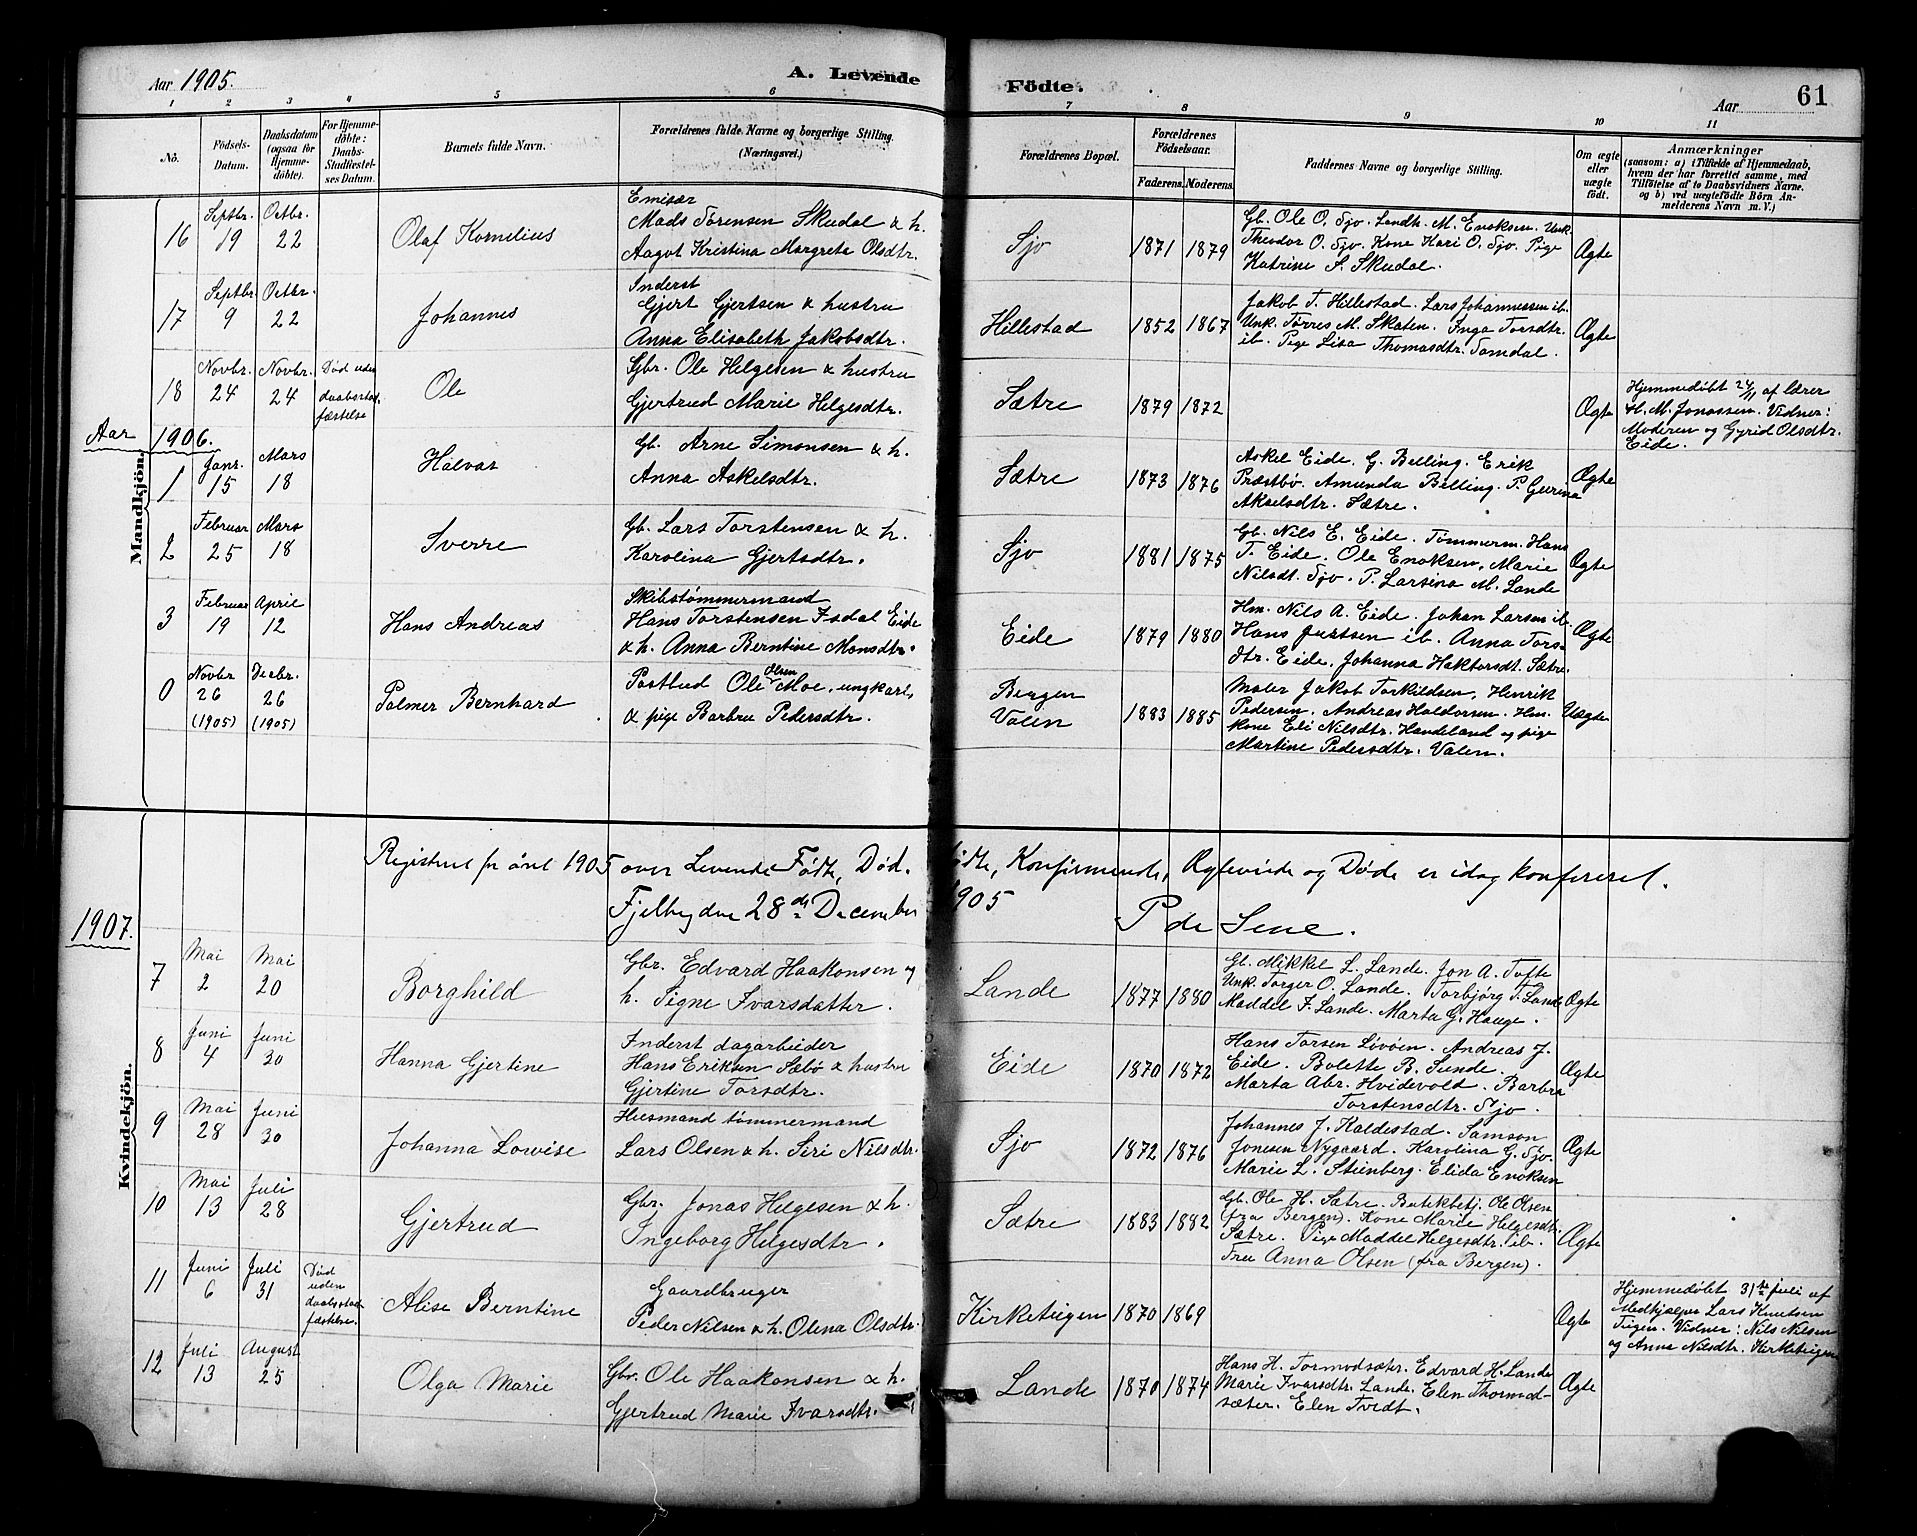 Aar 1905. A. Levende Födte. Aar 61
1 2 3 4 5 6 7 8 9 10 11
No.
Födsels-Datum.
Daabsdatum (ogsaa for Hjemme-döbte).
For Hjemme-döbte: Daabs-Stadfestel-ses Datum.
Barnets fulde Navn.
Forældrenes fulde Navne og borgerlige Stilling. (Næringsvei.)
Forældrenes Bopæl.
Forældrenes Födselsaar.
Faderens. Moderens.
Faddernes Navne og borgerlige Stilling.
Om ægte eller uægte födt.
Anmærkninger
(saasom: a) i Tilfælde af Hjemmedaab,
hvem der har forrettet samme, med
Tilföielse af to Daabsvidners Navne.
og b) ved uægtefödte Börn An-
melderens Navn m. V.)
Mandkjön.
16
Septbr. 19
Octbr. 22
Olaf Kornelius
Emisær
Mads Sørensen Skudal & h.
Aagot Kristina Margrete Olsdtr.
Sjo
1871 1879
Gb. Ole O. Sjo. Landh. M. Enoksen. Unk.
Theodor O. Sjo. Kone Kari O. Sjo. Pige
Katrine S. Skudal.
Ægte
17
Septbr. 9
Octbr. 22
Johannes
Inderst
Gjert Gjertsen & hustru
Anna Elisabeth Jakobsdtr.
Hillestad
1852 1867
Jakob T. Hillestad. Lars Johannessen ib.
Unk. Tørres M. Skaten. Inga Torsdtr.
ib. Pige Lisa Thomasdtr. Tomdal.
Ægte
18
Novbr. 24
Novbr. 24
Død uden
daabsstad-
fæstelse
Ole
Gbr. Ole Helgesen & hustru
Gjertrud Marie Helgesdtr.
Sætre
1879 1872
Ægte
Hjemmedøbt 24/11 af lærer
H. M. Jonassen. Vidner:
Moderen og Gyrid Olsdtr.
Eide.
Aar 1906.
1
Janr. 15
Mars 18
Halvar
Gb. Arne Simonsen & h.
Anna Askelsdtr.
Sætre
1873 1876
Askel Eide. G. Belling. Erik
Præstbø. Amunda Belling. P. Gurina
Akselsdtr. Sætre.
Ægte
2
Februar 25
Mars 18
Sverre
Gb. Lars Torstensen & h.
Karolina Gjertsdtr.
Sjo
1881 1875
Gb. Nils E. Eide. Tømmerm. Hans
T. Eide. Ole Enoksen, Marie
Nilsdt. Sjo. P. Larsina M. Lande
Ægte
3
Februar 19
April 12
Hans Andreas
Skibstømmermand
Hans Torstensen Isdal Eide
& h. Anna Berntine Monsdtr.
Eide
1879 1880
Hm. Nils A. Eide. Johan Larsen ib.
Hans Justsen ib. Anna Tors-
dtr. Eide. Johanna Haktorsdt. Sætre.
Ægte
0
Novbr 26 (1905)
Decbr. 26 (1905)
Palmer Bernhard
Postbud Ole Olsen Moe, ungkarl,
& pige Barbru Pedersdtr.
Bergen
Valen
1883 1885
Maler Jakob Torkildsen, Henrik
Pedersen. Andreas Haldorsen. Hm.
kone Eli Nilsdtr. Handeland og pige
Martine Pedersdtr. Valen.
Uægte
Registret for året 1905 over Levende Fødte, Død-
fødte, Konfirmerede, Ægteviede og Døde er idag konfereret.
Fjelberg den 28de December 1905
P de Seue.
1907.
Kvindekjön.
7
Mai 2
Mai 20
Borghild
Gbr. Edvard Haakonsen og
h. Signe Ivarsdatter.
Lande
1877 1880
Gb. Mikkel L. Lande. Jon A. Tofte
Unk. Torger O. Lande. Torbjørg T. Lande
Maddel F. Lande. Marta G. Hauge.
Ægte
8
Juni 4
Juni 30
Hanna Gjertine
Inderst dagarbeider
Hans Eriksen Sæbø & hustru
Gjertine Torsdtr.
Eide
1870 1872
Hans Torsen Løvøen. Andreas J.
Eide. Bolette B. Sunde.
Marta Abr. Hvidevold. Barbra
Torstensdtr. Sjo.
Ægte
9
Mai 28
Juni 30
Johanna Lovise
Huusmand tømmermand
Lars Olsen & h. Siri Nilsdtr.
Sjo
1872 1876
Johannes J. Kaldestad. Samson
Jonsen Nygaard. Karolina G. Sjo.
Marie L. Stenberg. Elida Enoksen
Ægte
10
Mai 13
Juli 28
Gjertrud
Gbr. Jonas Helgesen & h.
Ingeborg Helgesdtr.
Sætre
1883 1882
Gb. Ole H. Sætre. Butikbetj. Ole Olsen
(fra Bergen). Kone Marie Helgesdtr.
Sætre. Pige Maddel Helgesdtr. ib.
Fru Anna Olsen (fra Bergen).
Ægte
11
Juni 6
Juli 31
Død
uden
daabsstad-
fæstelse.
Alise Berntine
Gaardbruger
Peder Nilsen & h. Olena Olsdtr.
Kirketeigen
1870 1869
Ægte
Hjemmedøbt 31te juli af
Medhjælper Lars Knutsen
Teigen. Vidner: Nils Nilsen
og Anna Nilsdtr. Kirketeigen
12
Juli 13
August 25
Olga Marie
Gbr. Ole Haakonsen & h.
Gjertrud Marie Ivarsdtr.
Lande
1870 1874
Hans H. Tormodsæter. Edvard H. Lande
Marie Ivarsdtr. Lande. Elen Thormod-
sæter. Elen Tvedt.
Ægte